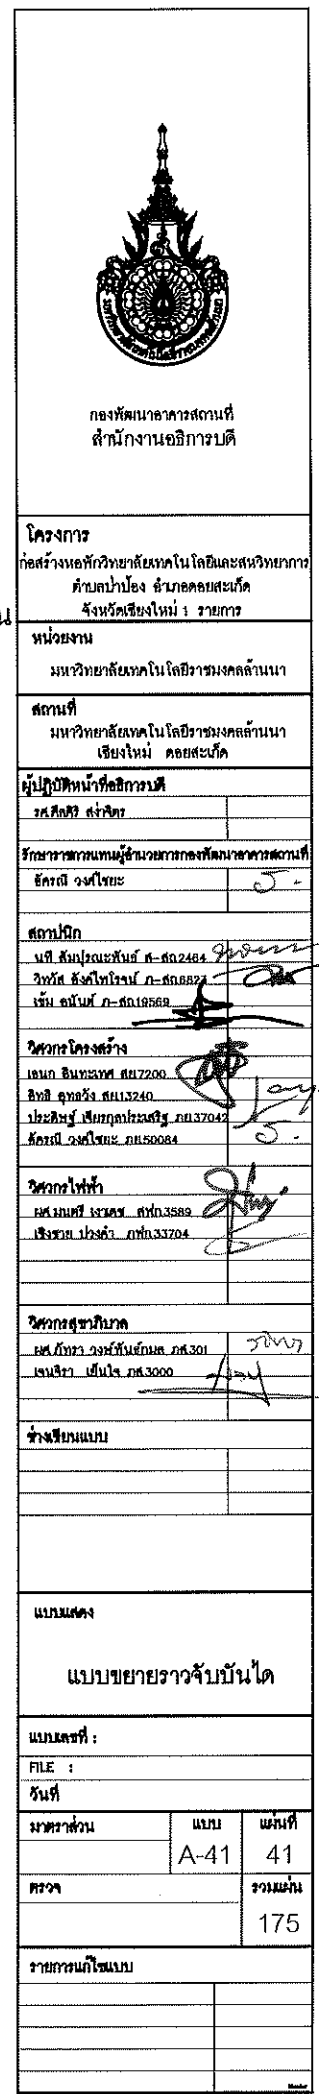 กองพัฒนาอาคารสถานที่
สำนักงานอธิการบดี
โครงการ
ก่อสร้างหอพักวิทยาลัยเทคโนโลยีและสหวิทยาการ
ตำบลป่าป้อง อำเภอดอยสะเก็ด
จังหวัดเชียงใหม่ 1 รายการ
น
หน่วยงาน
มหาวิทยาลัยเทคโนโลยีราชมงคลล้านนา
สถานที่
มหาวิทยาลัยเทคโนโลยีราชมงคลล้านนา
เชียงใหม่ ดอยสะเก็ด
ผู้ปฏิบัติหน้าที่อธิการบดี
รศ.ศีลศิริ สง่าจิตร
รักษาราชการแทนผู้อำนวยการกองพัฒนาอาคารสถานที่
อัครณี วงศ์ไชยะ
สถาปนิก
นที สัมปุรณะพันธ์ ส-สถ2464
วิทวัส ภ-สถ6827
เข้ม อนันต์ ภ-สถ19569
วิศวกรโครงสร้าง
เอนก อินทะเทศ สย7200
สิทธิ สย13240
ประดิษฐ์ เจียรกุลประเสริฐ ภย37042
อัครณี วงศ์ไชยะ ภย50084
วิศวกรไฟฟ้า
ผศ.มนตรี เงาเดช สฟก.3589
เชิงชาย ปวงคำ ภฟก.33704
วิศวกรสุขาภิบาล
ผศ.ภัทรา วงษ์พันธ์กมล ภส.301
เจนจิรา เย็นใจ ภส.3000
ช่างเขียนแบบ
แบบแสดง
แบบขยายราวจับบันได
แบบเลขที่ :
FILE :
วันที่
มาตราส่วน แบบ แผ่นที่
A-41 41
ตรวจ รวมแผ่น
175
รายการแก้ไขแบบ